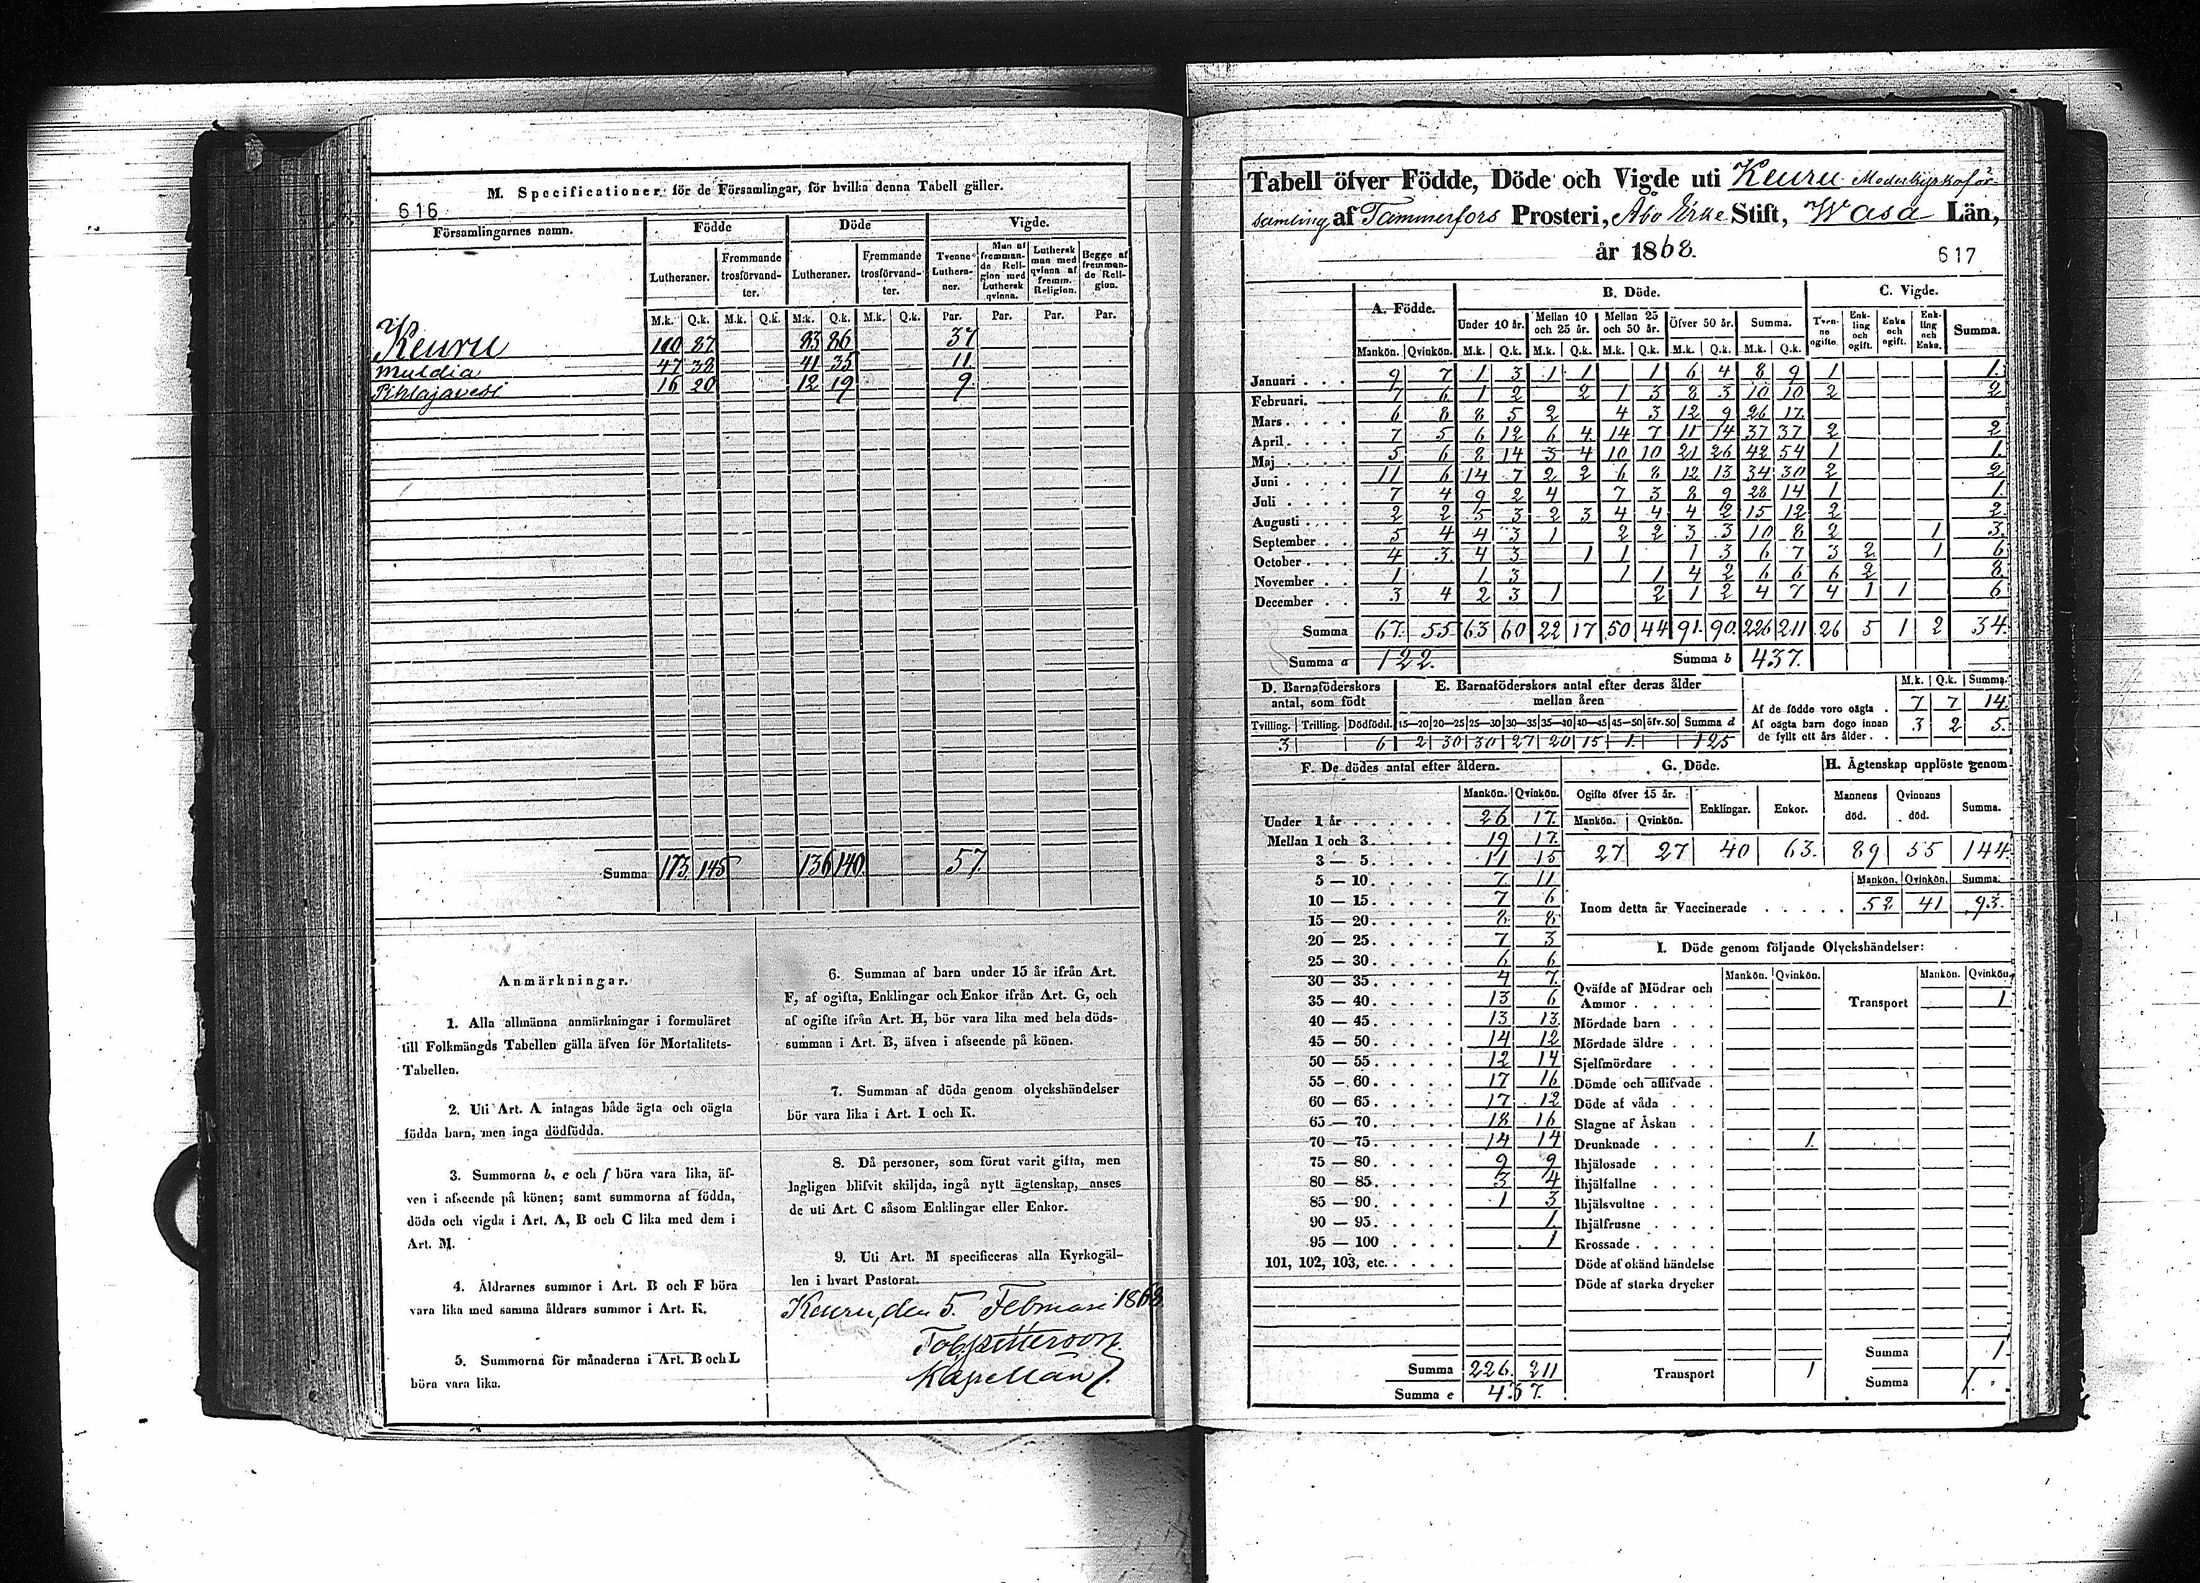 M. Specificationer för de Församlingar, för hvilka denna Tabell gäller.
616
Församlingarnes namn. Födde Döde Vigde.
Lutheraner. Fremmande trosförvandter. Lutheraner. Fremmande trosförvandter. Tvenne Lutheraner. Man af fremmande Religion med Luthersk qvinna. Luthersk man med qvinna af fremm. Religion. Begge af fremmande Religion.
M.k. Q.k. M.k. Q.k. M.k. Q.k. M.k. Q.k. Par. Par. Par. Par.
Keuru 110 87 83 86 37
Muldia 47 38 41 35 11.
Pihlajavesi 16 20 12 19 9.
Summa 173. 145 136 140. 57.
Anmärkningar.
1. Alla allmänna anmärkningar i formuläret
till Folkmängds Tabellen gälla äfven för Mortalitets-
Tabellen.
2. Uti Art. A intagas både ägta och oägta
födda barn, men inga dödfödda.
3. Summorna b, e och f böra vara lika, äf-
ven i afseende på könen; samt summorna af födda,
döda och vigda i Art. A, B och C lika med dem i
Art. M.
4. Åldrarnes summor i Art. B och F böra
vara lika med samma åldrars summor i Art. K.
5. Summorna för månaderna i Art. B och L
böra vara lika.
6. Summan af barn under 15 år ifrån Art.
F, af ogifta, Enklingar och Enkor ifrån Art. G, och
af ogifte ifrån Art. H, bör vara lika med hela döds-
summan i Art. B, äfven i afseende på könen.
7. Summan af döda genom olyckshändelser
bör vara lika i Art. I och K.
8. Då personer, som förut varit gifta, men
lagligen blifvit skiljda, ingå nytt ägtenskap, anses
de uti Art. C såsom Enklingar eller Enkor.
9. Uti Art. M specificeras alla Kyrkogäl-
len i hvart Pastorat.
Keuru, den 5. Februari 1868
Kapellan
Tabell öfver Födde, Döde och Vigde uti Keuru Moderkyrkoför-
samling af Tammerfors Prosteri, Åbo Erke Stift, Wasa Län,
år 1868.
617
A. Födde. B. Döde. C. Vigde.
Under 10 år. Mellan 10 och 25 år. Mellan 25 och 50 år. Öfver 50 år. Summa. Tvenne ogifte. Enkling och ogift. Enka och ogift. Enkling och Enka. Summa.
Mankön. Qvinkön. M.k. Q.k. M.k. Q.k. M.k. Q.k. M.k. Q.k. M.k. Q.k.
Januari . . . 9 7 1 3 1 1 1 6 4 8 9 1 1.
Februari. . . 7 6 1 2 2 1 3 8 3 10 10 2 2
Mars . . . . 6 8 8 5 2 4 3 12 9 26 17.
April . . . . 7 5 6 12 6 4 14 7 11 14 37 37 2 2
Maj . . . . 5 6 8 14 3 4 10 10 21 26 42 54 1 1.
Juni . . . . 11 6 14 7 2 2 6 8 12 13 34 30 2 2
Juli . . . . 7 4 9 2 4 7 3 8 9 28 14 1 1.
Augusti . . . 2 2 5 3 2 3 4 4 4 2 15 12 2 2.
September . . 5 4 4 3 1 2 2 3 3 10 8 2 1 3.
October . . . 4 3. 4 3 1 1 1 3 6 7 3 2 1 6
November . . 1 1 3 1 1 4 2 6 6 6 2 8.
December . . 3 4 2 3 1 2 1 2 4 7 4 1 1 6
Summa 67. 55 63 60 22 17 50 44 91. 90. 226 211 26 5 1 2 34.
Summa a 122. Summa b 437.
D. Barnaföderskors antal, som födt
Tvilling. Trilling. Dödfödd.
3 6
E. Barnaföderskors antal efter deras ålder mellan åren
15—20 20—25 25—30 30—35 35—40 40—45 45—50 öfv. 50 Summa d
2 30 30 27 20 15 1. 125
M.k. Q.k. Summa.
Af de födde voro oägta . 7 7 14.
Af oägta barn dogo innan de fyllt ett års ålder . . 3 2 5.
F. De dödes antal efter åldern.
Mankön. Qvinkön.
Under 1 år . . . . . . 26 17.
Mellan 1 och 3. . . . . 19 17.
3 — 5. . . . . 11 15
5 — 10. . . . . 7. 11
10 — 15. . . . . 7 6
15 — 20. . . . . 8 8
20 — 25. . . . . 7 3
25 — 30. . . . . 6 6
30 — 35. . . . . 4 7.
35 — 40. . . . . 13 6
40 — 45. . . . . 13 13.
45 — 50. . . . . 14 12
50 — 55. . . . . 12 14
55 — 60. . . . . 17 16
60 — 65. . . . . 17 12
65 — 70. . . . . 18 16
70 — 75. . . . . 14 14
75 — 80. . . . . 9 9
80 — 85. . . . . 3 4
85 — 90. . . . . 1 3
90 — 95. . . . . 1.
95 — 100 . . . . 1
101, 102, 103, etc. . . . .
Summa 226. 211
Summa e 437.
G. Döde.
Ogifte öfver 15 år. Enklingar. Enkor.
Mankön. Qvinkön.
27 27 40 63.
H. Ägtenskap upplöste genom
Mannens död. Qvinnans död. Summa.
89 55 144.
Mankön. Qvinkön. Summa.
Inom detta år Vaccinerade . . . . . 52 41 93.
I. Döde genom följande Olyckshändelser:
Mankön. Qvinkön. Mankön. Qvinkön.
Qväfde af Mödrar och Ammor . . . . . Transport 1
Mördade barn . . .
Mördade äldre . . .
Sjelfmördare . . .
Dömde och aflifvade .
Döde af våda . . .
Slagne af Åskan . .
Drunknade . . . . 1.
Ihjälosade . . . .
Ihjälfallne . . . .
Ihjälsvultne . . . .
Ihjälfrusne . . . .
Krossade . . . . .
Döde af okänd händelse
Döde af starka drycker
Summa 1.
Transport 1 Summa 1.